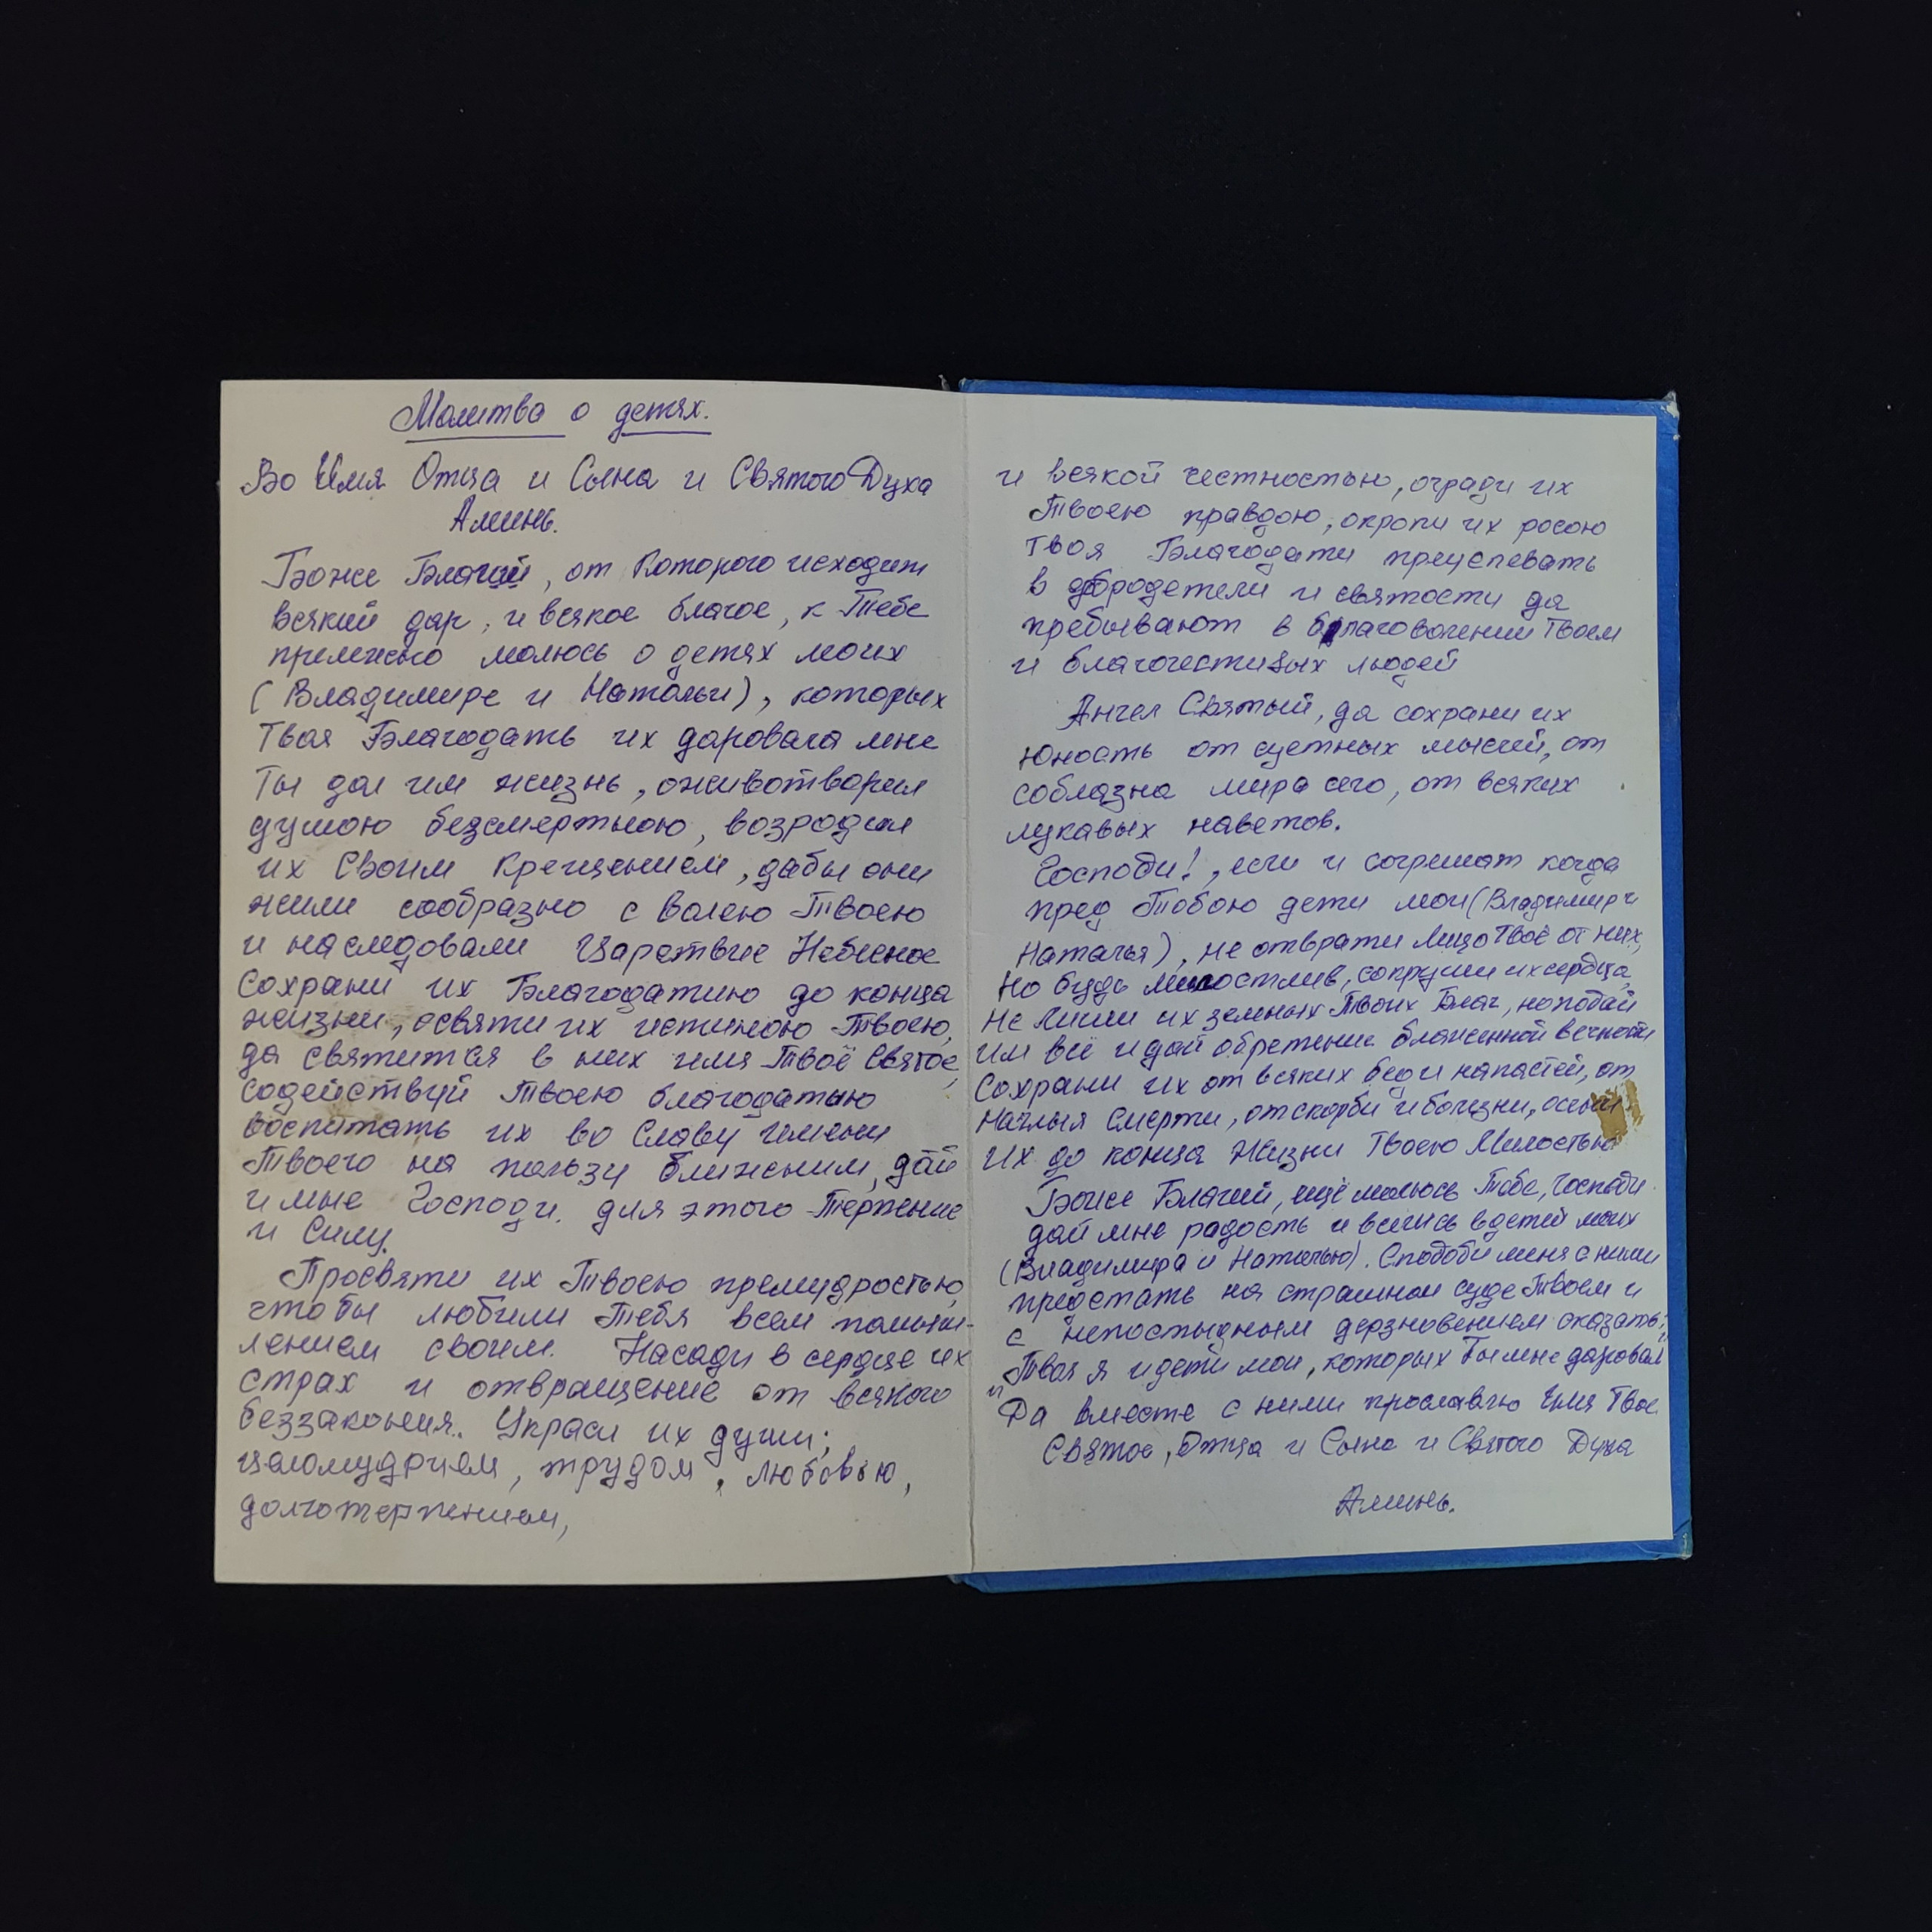 Молитва о детях.
Во Имя Отца и Сына и Святого Духа
Аминь.
Боже Благий, от Которого исходит
всякий дар, и всякое благое, к Тебе
прилежно молюсь о детях моих
(Владимире и Натальи), которых
Твая Благодать их даровала мне
Ты дал им жизнь, оживотворил
душою безсмертною, возродил
их Своим Крещением, дабы они
жили сообразно с волею Твоею
и наследовали Царствие Небесное
Сохрани их Благодатию до конца
жизни, освяти их истиною Твоею,
да святится в них имя Твоё Святое,
содействуй Твоею благодатью
воспитать их во Славу имени
Твоего на пользу ближним, дай
и мне Господи, для этого Терпение
и Силу.
Просвяти их Твоею премудростью,
чтобы любили Тебя всем помыш-
лением своим. Насади в сердце их
страх и отвращение от всякого
беззакония. Украси их души;
целомудрием, трудом, любовью,
долготерпением,
и всякой честностью, огради их
Твоею правдою, окропи их росою
Твоя Благодати преуспевать
в добродетели и святости да
пребывают в благоволении Твоем
и благочестивых людей
Ангел Святый, да сохрани их
юность от суетных мыслей, от
соблазна мира сего, от всяких
лукавых наветов.
Господи!, если и согрешат когда
пред Тобою дети мои (Владимир и
Наталья), не отврати Лицо Твоё от них,
но будь милостлив, сокруши их сердца,
не лиши их земных Твоих Благ, но подай
им всё и дай обретение блаженной вечности
Сохрани их от всяких бед и напастей, от
наглыя Смерти, от скорби и болезни, осени
их до конца Жизни Твоею Милостью
Боже Благий, ещё молюсь Тебе, Господи
дай мне радость и веселись в детей моих
(Владимира и Наталью). Сподоби меня с ними
предстать на страшном суде Твоем и
с непостыдным дерзновением сказать;
"Твоя я и дети мои, которых Ты мне даровал"
Да вместе с ними прославлю Имя Твое
Святое, Отца и Сына и Святого Духа
Аминь.